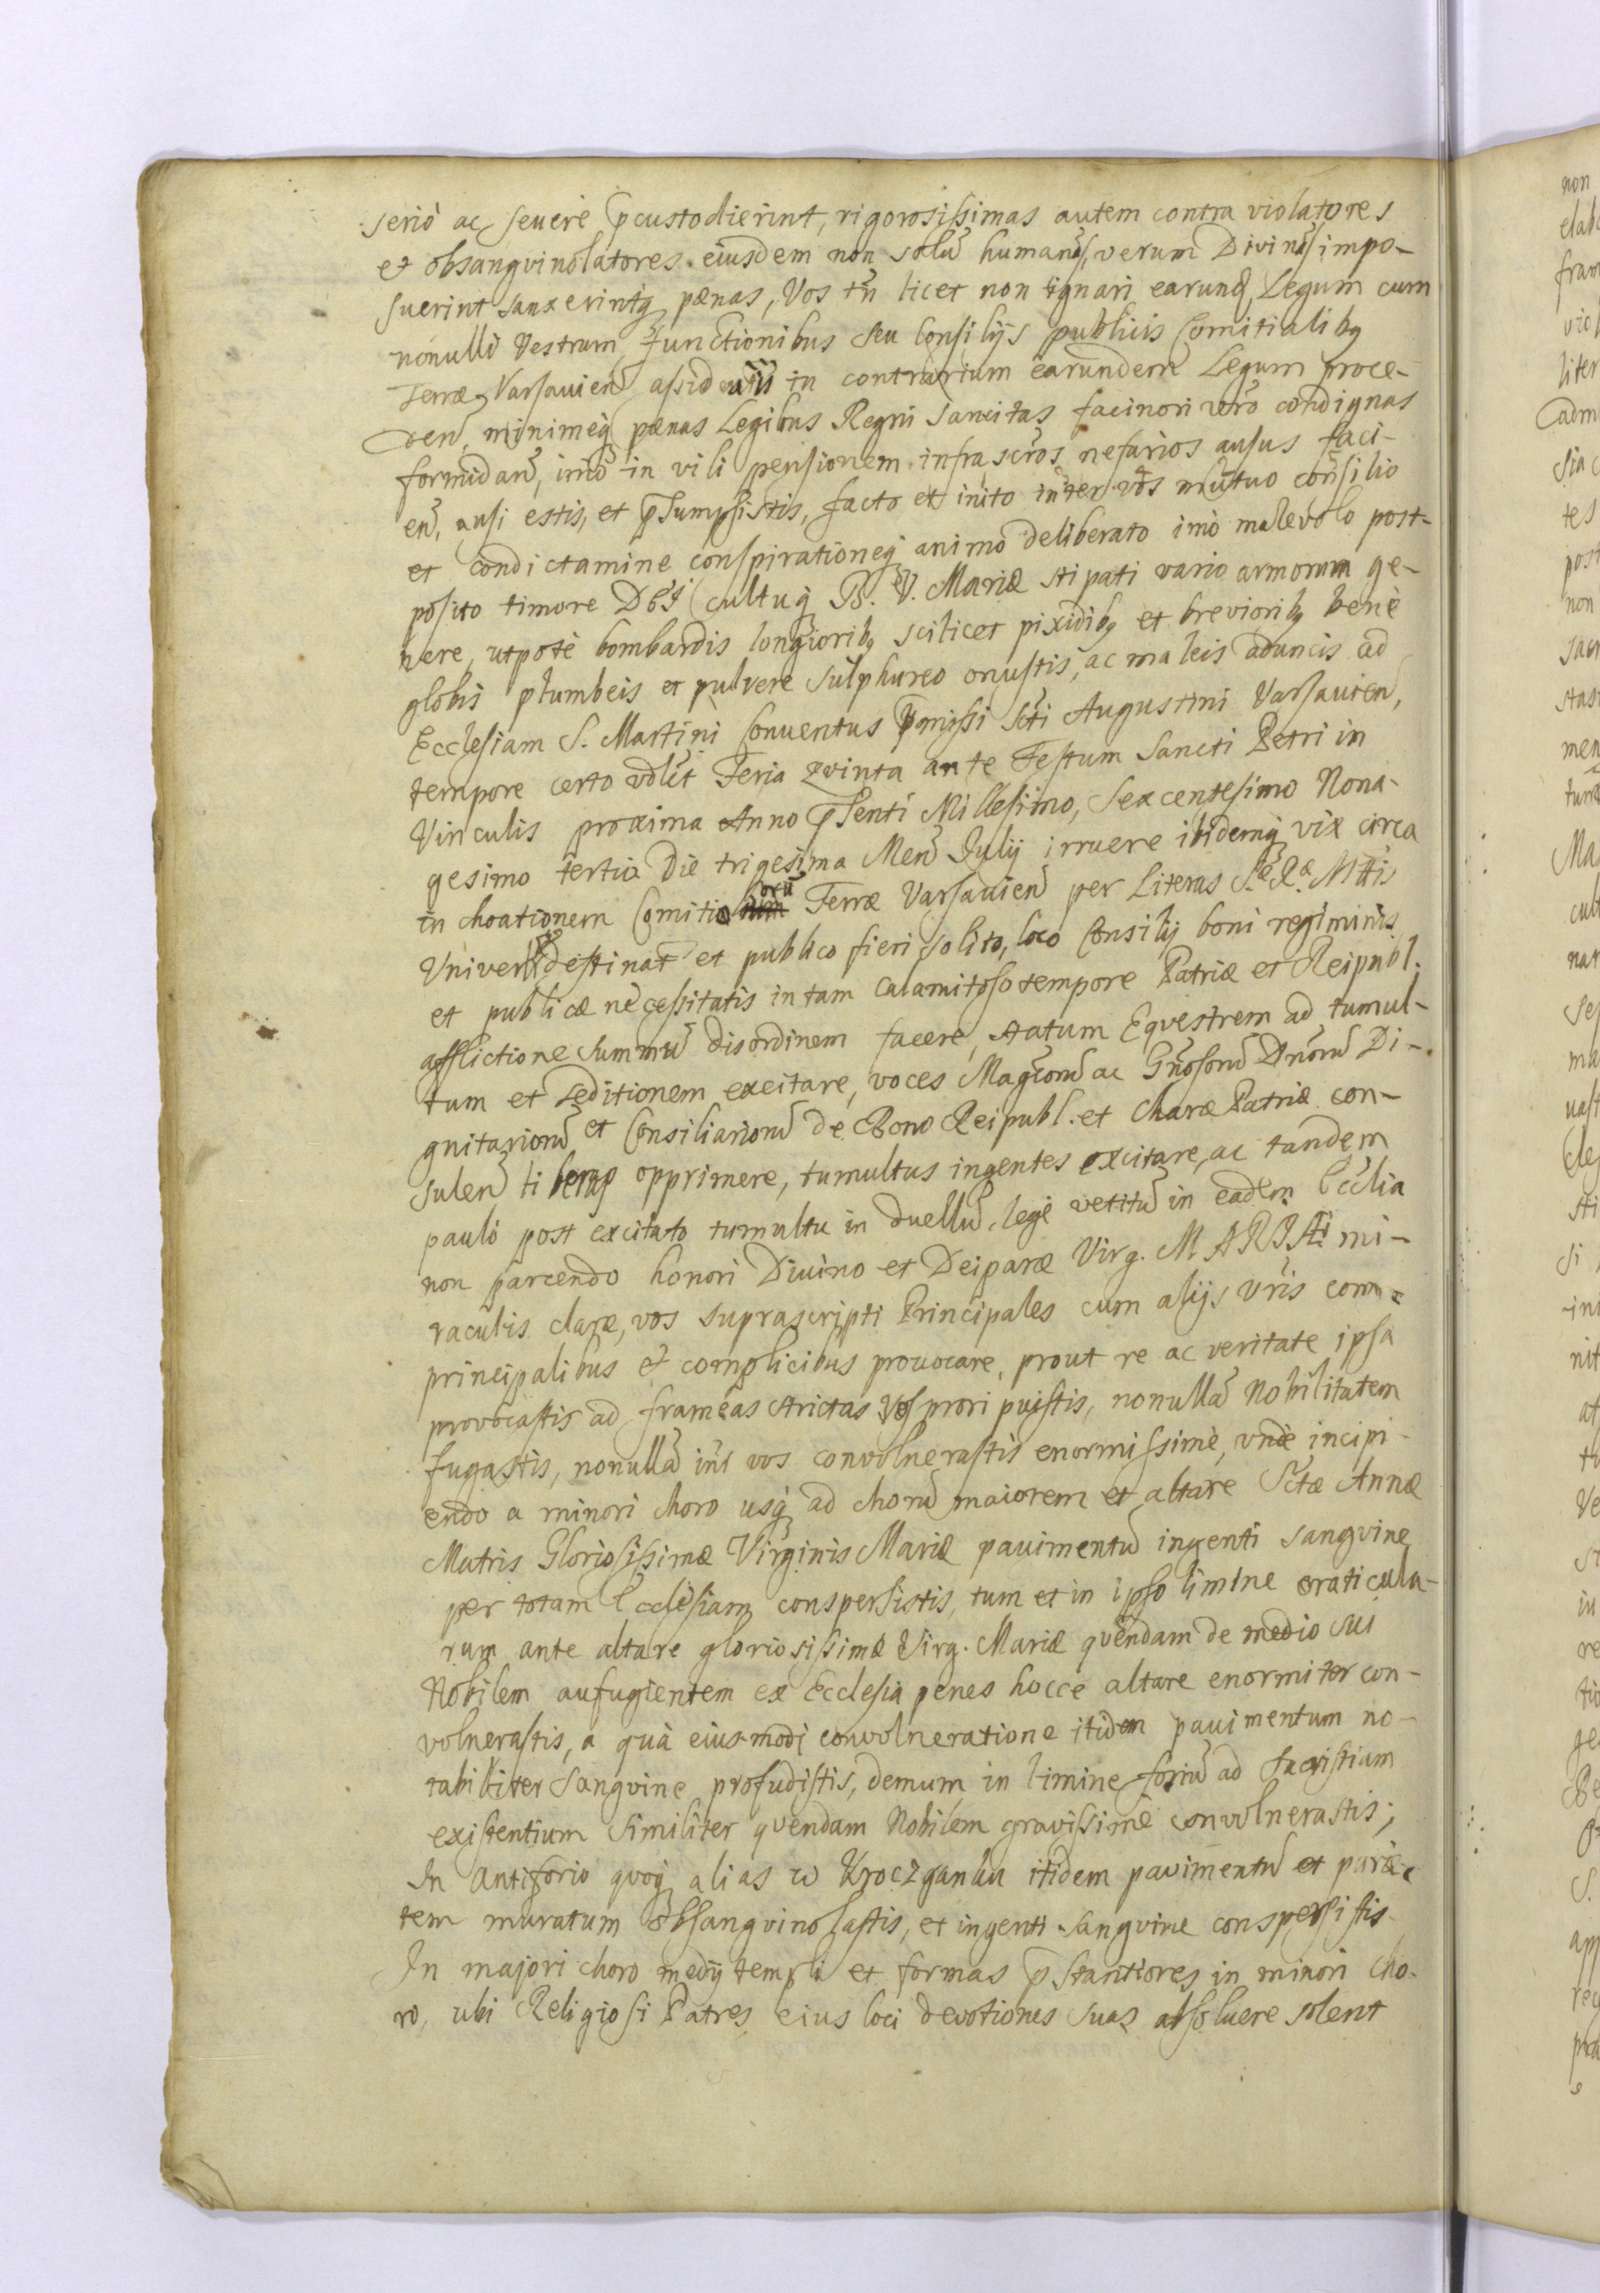 serió ac severè p̄custodierint, rigorosissimas autem contra violatores
et obsangvinolatores eiusdem non solũ humanas, verum Divinas impo-
suerint sanxerintq̃ pænas, Vos tñ licet non ignari earund, Legum cum
nonulli Vestrum, functionibus seu Consilijs publicis Comitialibq
Terræ Varsavien̄ assideatis in contrarium earundem Legum proce-
den̄, minimeq̃ pænas Legibus Regni sancitas facinori verò condignas
formidan̄, imò in vili pensionem infrascr̃os nefarios ausus faci-
en̄, ausi estis, et p̄sumpsistis, facto et inito inter vos mutuo consilio
et condictamine conspirationeq̃ animo deliberato imò malevolo post-
posito timore DEI cultuq̃ B. V. Mariæ stipati vario armorum ge-
nere, utpotè bombardis longioribq scilicet pixidibq et brevioribq benè
globis plumbeis et pulvere sulphureo onustis, ac maleis aduncis ad
Ecclesiam S. Martini Conventus p̄missi Sc̃ti Augustini Varsavien̄,
tempore certo vdlt Feria Qvinta ante Festum Sancti Petri in
Vinculis proxima Anno p̄senti Millesimo, Sexcentesimo Nona-
gesimo tertio Die trigesima Men̄ Julij irruere ibidemq̃ vix circa
inchoationem Comitiorũ Terræ Varsavien̄ per Literas S. R. Mttis
Univers. destinat̄ et publico fieri solito, loco Consilij boni regiminis
et publicæ necessitatis in tam calamitoso tempore Patriæ et Reipubl.
afflictione summũ disordinem facere, statum Eqvestrem ad tumul-
tum et seditionem excitare, voces Mag̃corũ ac Gñosorũ Dñorũ Di-
gnitariorũ et Consiliariorũ de Bono Reipubl. et charæ Patriæ con-
sulen̄ liberas opprimere, tumultus ingentes excitare, ac tandem
pauló post excitato tumultu in duellũ, lege vetitũ in eadem Eccl̃ia
non parcendo honori Divino et Deiparæ Virg. MARIÆ mi-
raculis claræ, vos suprascripti Principales cum alijs vr̃is com-
principalibus et complicibus provocare, prout re ac veritate ipsa
provocastis ad frameas strictas vos proripuistis, nonullã Nobilitatem
fugastis, nonullã int̃ vos convolnerastis enormissimè, unde incipi-
endo a minori choro usq̃ ad chorũ maiorem et altare S̃tæ Annæ
Matris Gloriosissimæ Virginis Mariæ pavimentũ ingenti sangvine
per totam Ecclesiam conspersistis, tum et in ipso limine craticula-
rum ante altare gloriosissimæ Virg. Mariæ qvendam de medio sui
Nobilem aufugientem ex Ecclesia penes hocce altare enormiter con-
volnerastis, a quà eiusmodi convolneratione itidem pavimentum no-
tabiliter sangvine profudistis, demum in limine foriũ ad sacristiam
existentium similiter qvendam Nobilem gravissimè convolnerastis;
In antiforio qvoq̃ alias w Kroczganku itidem pavimentũ et parie-
tem muratum obsangvinolastis, et ingenti sangvine conspersistis.
In majori choro medij templi et formas p̄stantiores in minori cho-
ro, ubi Religiosi Patres eius loci devotiones suas absoluere solent